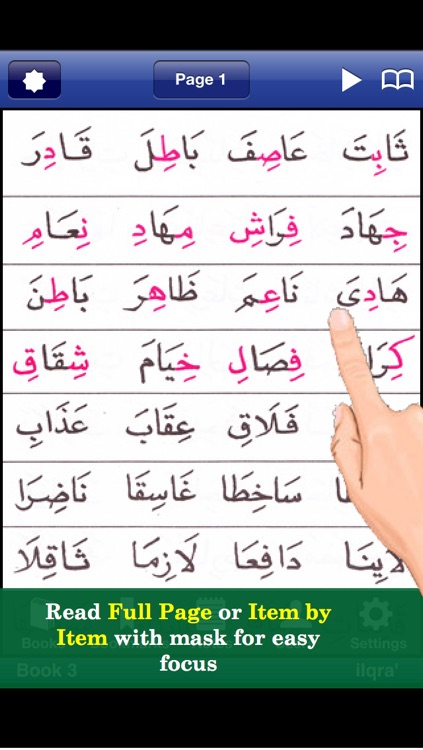 Page 1
ثَابِتَ عَاصِفَ بَاطِلَ قَادِرَ
جِهَادَ فِرَاشِ مِهَادِ نِعَامِ
هَادِىَ نَاعِمَ ظَاهِرَ بَاطِنَ
فِصَالِ خِيَامَ شِقَاقِ
فَلَاقِ عِقَابَ عَذَابِ
سَاخِطَا غَاسِقَا نَاضِرَا
لَايِنَا دَافِعَا لَازِمَا ثَاقِلَا
Read Full Page or Item by
Item with mask for easy
focus
Settings
Book 3 iIqra'